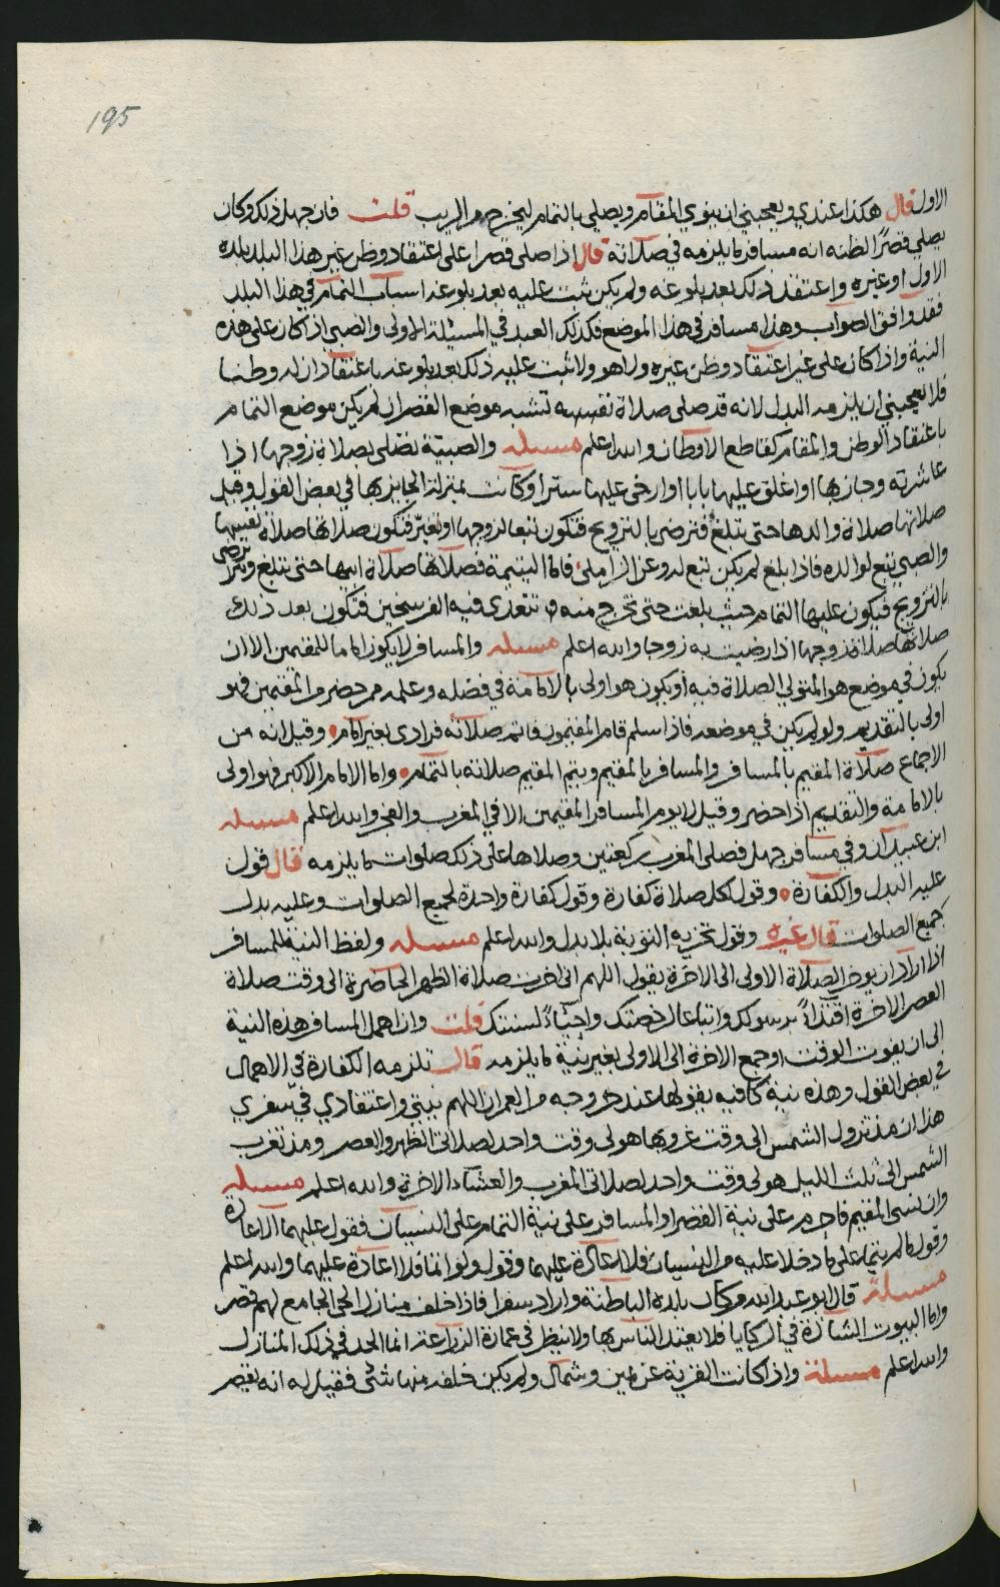 195
الاول قال هكذا عندي ويعجبني ان ينوي المقام ويصلي بالتمام ليخرج من الريب قلت فان جهل ذلك وكان
يصلي قصرًا لظنه انه مسافر ما يلزمه في صلاته قال اذا صلى قصرا على اعتقاد وطن غير هذا البلد بلده
الاول او غيره واعتقد ذلك بعد بلوغه ولم يكن ثبت عليه بعد بلوغه اسباب التمام في هذا البلد
فقد وافق الصواب وهذا مسافر في هذا الموضع فكذلك العبد في المسئلة الاولى والصبي اذا كان على هذه
النية واذا كان على غير اعتقاد وطن غيره ولا هو ولا ثبت عليه ذلك بعد بلوغه باعتقاد انه له وطنا
فلا يعجبني ان يلزمه البدل لانه قد صلى صلاة نفسه تشبه موضع القصر ان لم يكن موضع التمام
باعتقاد الوطن والمقام كقاطع الاوطان والله اعلم مسئله والصبيّة تصلي بصلاة زوجها اذا
عاشرته وجاز بها او اغلق عليها بابا او ارخى عليها سترا وكانت بمنزلة الجايز بها في بعض القول وقيل
صلاتها صلاة والدها حتى تبلغ فترضى بالتزويج فتكون تبعا لزوجها او تغيّر فتكون صلاتها صلاة نفسها
والصبي تبع لوالده فاذا بلغ لم يكن تبع له وعن الزاملي فاما اليتيمة فصلاتها صلاة ابيها حتى تبلغ وترضى
بالتزويج فيكون عليها التمام حيث بلغت حتى تخرج منه وتتعدى فيه الفرسخين فتكون بعد ذلك
صلاتها صلاة زوجها اذا رضيت به زوجا والله اعلم مسئله والمسافر لا يكون اماما للمقيمين الا ان
يكون في موضع هو المتولي الصلاة فيه او يكون هو اولى بالامامة في فضله وعلمه ممن حضر من المقيمين فهو
اولى بالتقديم ولو لم يكن في موضعه فاذا سلم قام المقيمون فاتم صلاته فرادى بغير امام وقيل انه من
الاجماع صلاة المقيم بالمسافر والمسافر بالمقيم ويتم المقيم صلاته بالتمام واما الامام الاكبر فهو اولى
بالامامة والتقديم اذا حضر وقيل لا يوم المسافر المقيمين الا في المغرب والفجر والله اعلم مسئله
ابن عبيدان وفي مسافر جهل فصلى المغرب ركعتين وصلاها على ذلك صلوات ما يلزمه قال قول
عليه البدل والكفارة وقول لكل صلاة كفارة وقول كفارة واحدة لجميع الصلوات وعليه بدل
جميع الصلوات قال غيره وقول تجزيه التوبة بلا بدل والله اعلم مسئله ولفظ النية للمسافر
اذا اراد ان يوخر الصلاة الاولى الى الاخرة يقول اللهم اني اخرت صلاة الظهر الحاضرة الى وقت صلاة
العصر الاخرة اقتداءً برسولك واتباعا لرخصتك واحياءً لسنتك قلت وان اهمل المسافر هذه النية
الى ان يفوت الوقت او جمع الاخرة الى الاولى بغير نية ما يلزمه قال تلزمه الكفارة في الاهمال
في بعض القول وهذه نية كافيه يقولها عند خروجه من العمران اللهم نيتي واعتقادي في سفري
هذا ان مذ تزول الشمس الى وقت غروبها هو لي وقت واحد لصلاتي الظهر والعصر ومذ تغرب
الشمس الى ثلث الليل هو لي وقت واحد لصلاتي المغرب والعشاء الاخرة والله اعلم مسئله
وان نسي المقيم فاحرم على نية القصر او المسافر على نية التمام على النسيان فقول عليهما الاعادة
وقول ما لم يتما على ما دخلا عليه من النسيان فلا اعادة عليهما وقول ولو اتما فلا اعادة عليهما والله اعلم
مسئلة قال ابو عبد الله من كان بلده الباطنة واراد سفرا فاذا خلف منازل الحي الجامع لهم قصر
واما البيوت الشاذة في الركايا فلا يعتد الناس بها ولا ينظر في عمارة الزراعه انما الحد في ذلك المنازل
والله اعلم مسئلة واذا كانت القرية عن يمين وشمال ولم يكن خلفه منها شئ فقيل له انه يقصر